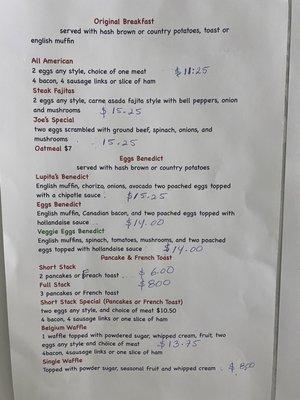 Original Breakfast
served with hash brown or country potatoes, toast or
english muffin
All American
2 eggs any style, choice of one meat $11.25
4 bacon, 4 sausage links or slice of ham
Steak Fajitas
2 eggs any style, carne asada fajita style with bell peppers, onion
and mushrooms $15.25
Joe's Special
two eggs scrambled with ground beef, spinach, onions, and
mushrooms 15.25
Oatmeal $7
Eggs Benedict
served with hash brown or country potatoes
Lupita's Benedict
English muffin, chorizo, onions, avocado two poached eggs topped
with a chipotle sauce $15.25
Eggs Benedict
English muffin, Canadian bacon, and two poached eggs topped with
hollandaise sauce $14.00
Veggie Eggs Benedict
English muffins, spinach, tomatoes, mushrooms, and two poached
eggs topped with hollandaise sauce $14.00
Pancake & French Toast
Short Stack
2 pancakes or French toast $6.00
Full Stack $800
3 pancakes or French toast
Short Stack Special (Pancakes or French Toast)
two eggs any style, and choice of meat $10.50
4 bacon, 4 sausage links or one slice of ham
Belgium Waffle
1 waffle topped with powdered sugar, whipped cream, fruit, two
eggs any style and choice of meat $13.75
4bacon, 4sausage links or one slice of ham
Single Waffle
Topped with powder sugar, seasonal fruit and whipped cream $800